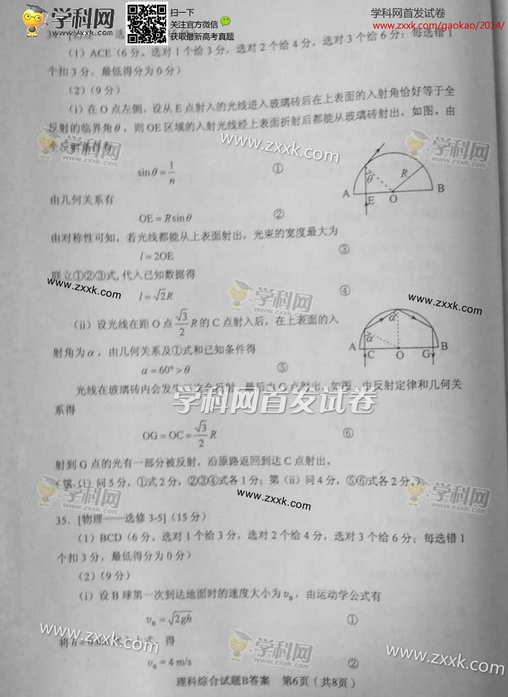 学科网
www.zxxk.com
扫一下
关注官方微信
获取最新高考真题
学科网首发试卷
www.zxxk.com/gaokao/2014/
(1) ACE (6分。选对1个给3分,选对2个给4分,选对3个给6分;每选错1
个扣3分,最低得分为0分)
(2) (9分)
(i) 在O点左侧,设从E点射入的光线进入玻璃砖后在上表面的入射角恰好等于全
反射的临界角θ,则OE区域的入射光线经上表面折射后都能从玻璃砖射出,如图。由
sinθ = 1/n ①
由几何关系有
OE = R sinθ ②
由对称性可知,若光线都能从上表面射出,光束的宽度最大为
l = 2OE ③
联立①②③式,代入已知数据得
l = √2R ④
A E O B R θ
(ii) 设光线在距O点√3/2 R的C点射入后,在上表面的入
射角为α,由几何关系及①式和已知条件得
α = 60° > θ ⑤
A C O G B α α
光线在玻璃砖内会发生
射出,如图,由反射定律和几何关
系得
OG = OC = √3/2 R ⑥
射到G点的光有一部分被反射,沿原路返回到达C点射出。
(第(i)问5分,①式2分,②③④式各1分;第(ii)问4分,⑤⑥式各2分。)
35. [物理——选修3-5] (15分)
(1) BCD (6分。选对1个给3分,选对2个给4分,选对3个给6分;每选错1
个扣3分,最低得分为0分)
(2) (9分)
(i) 设B球第一次到达地面时的速度大小为vB,由运动学公式有
vB = √2gh ①
得
vB = 4 m/s ②
理科综合试题B答案 第6页(共8页)
学科网首发试卷
学科网
www.zxxk.com
zxxk.com